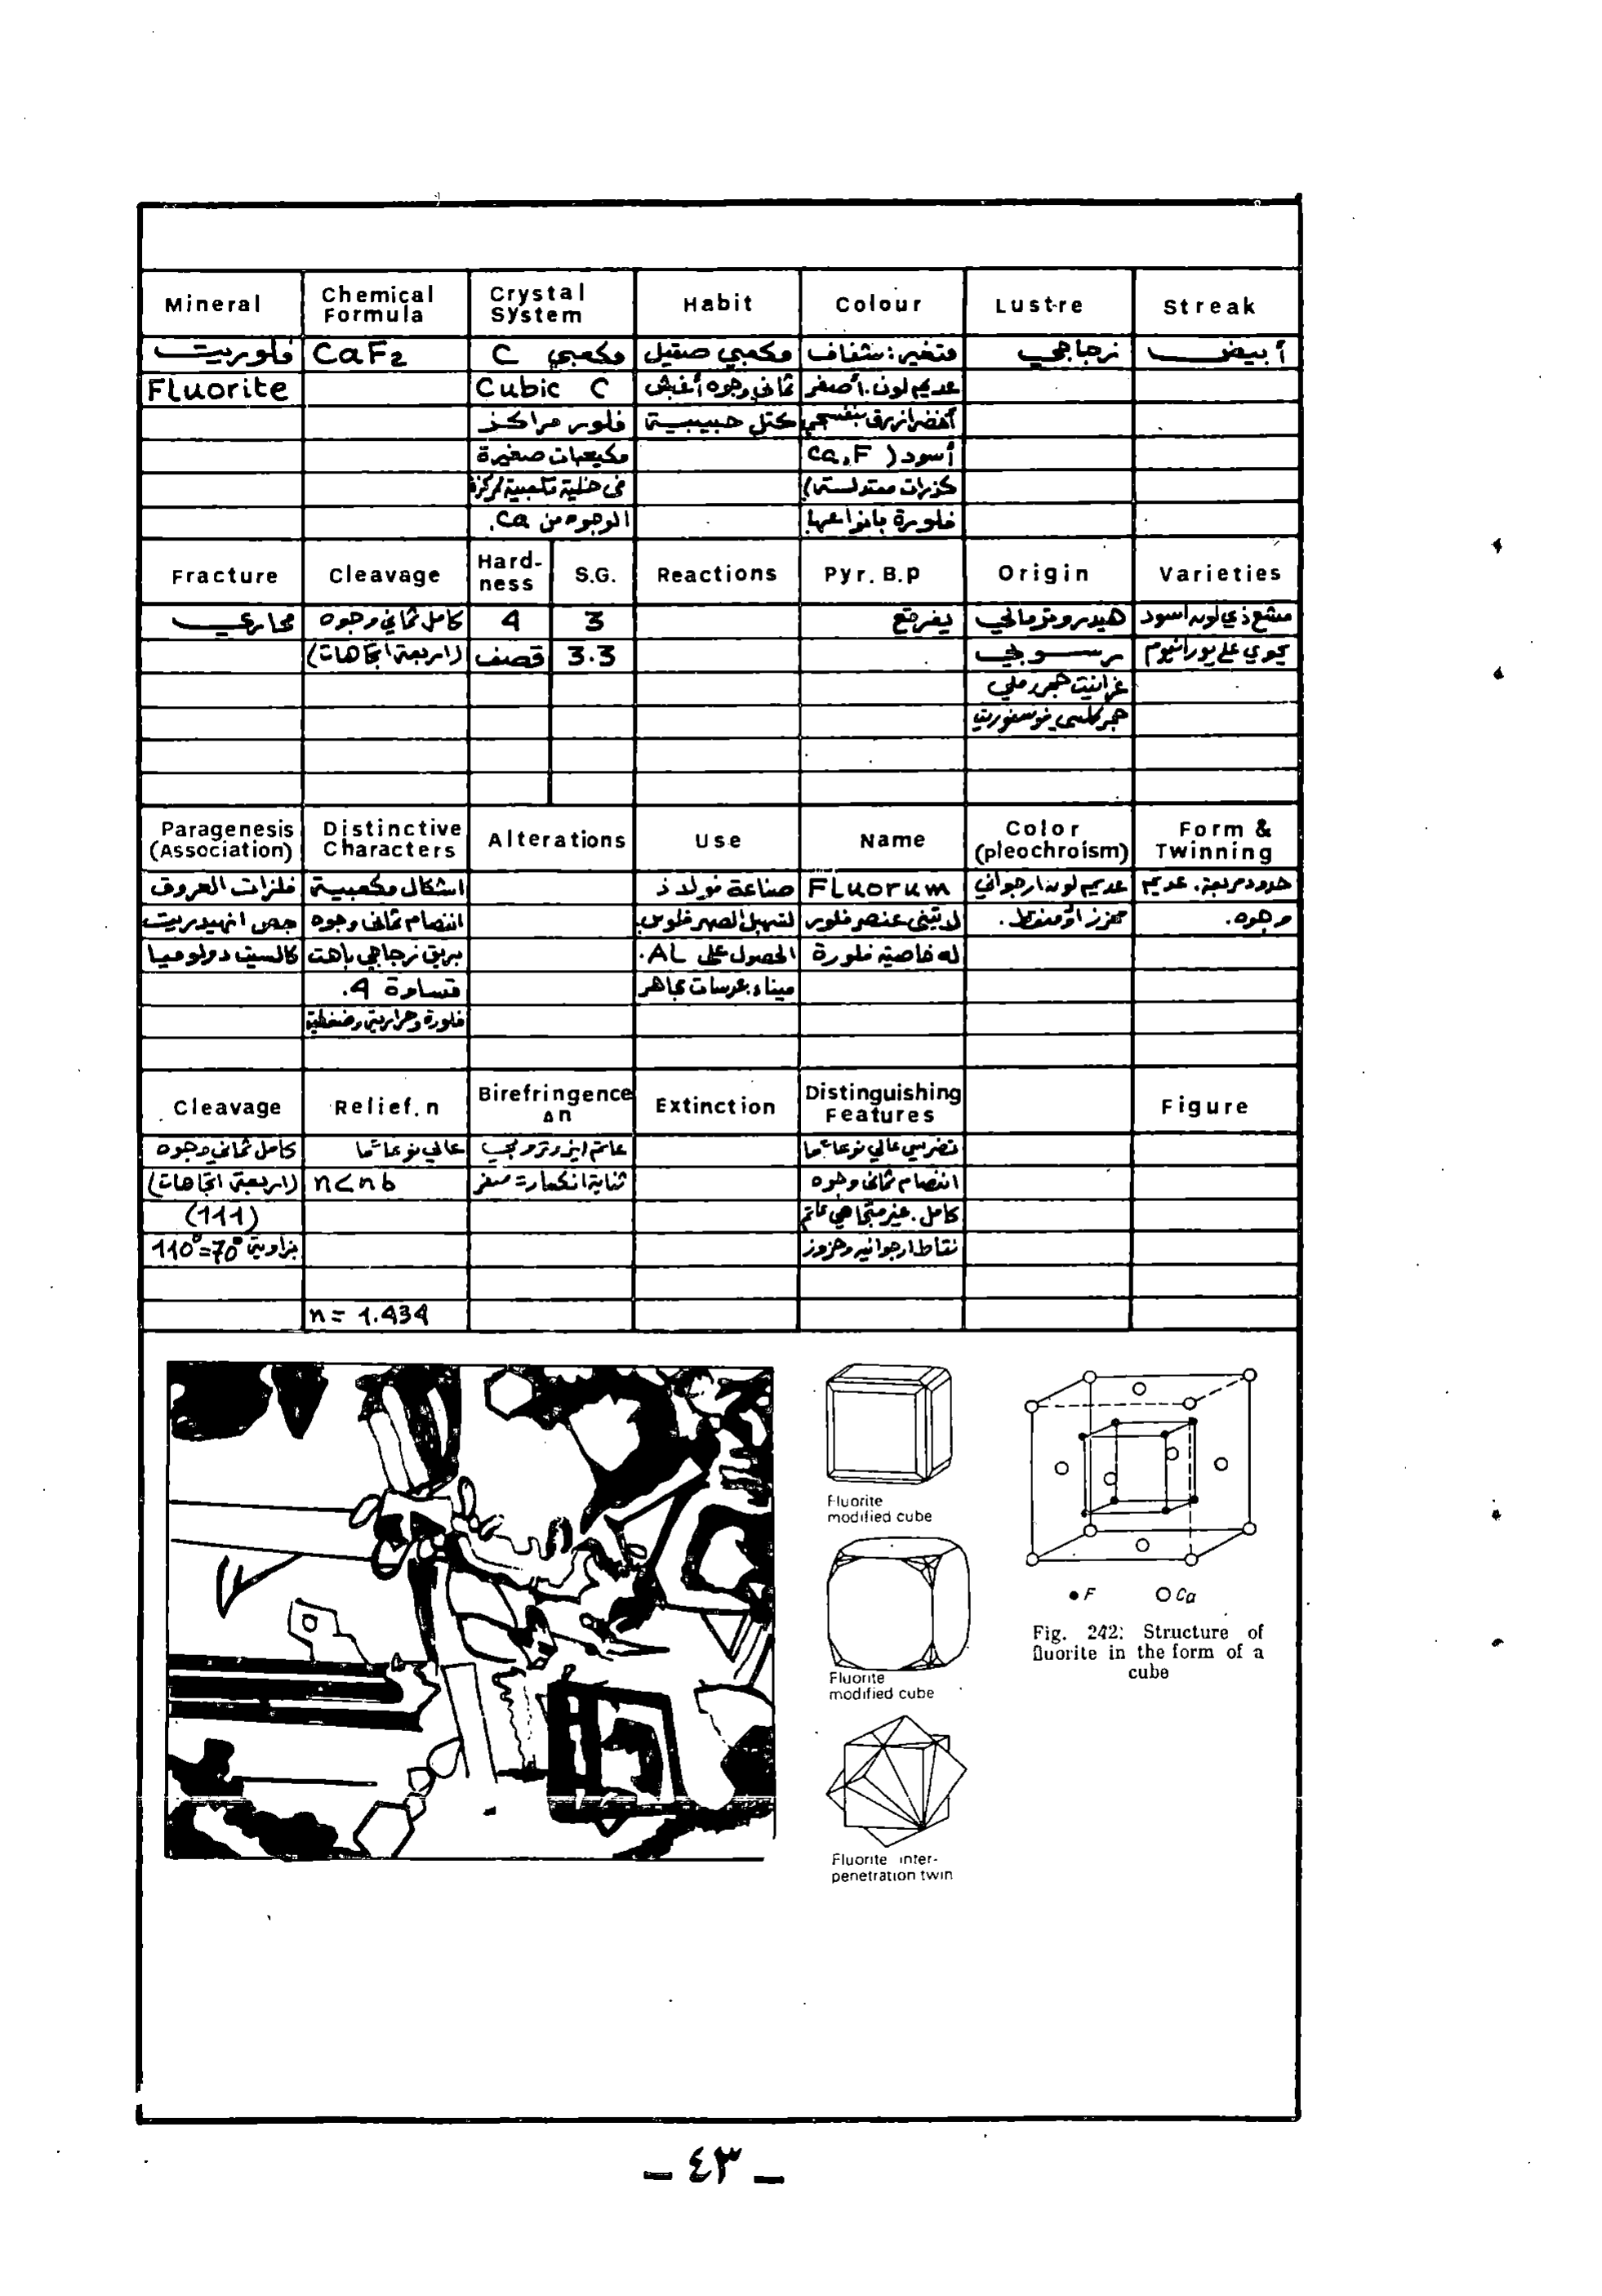 Mineral
Chemical Formula
Crystal System
Habit
Colour
Lustre
Streak
فلوريت
CaF2
مكعبي C
مكعبي صقيل
متغير: شفاف
زجاجي
أبيض
Fluorite
Cubic C
ثماني وجوه أغبش
عديم لون. أصفر
فلور مراكز
كتل حبيبية
أخضر أزرق بنفسجي
مكيعبات صغيرة
أسود (Ca,F
في خلية تكعيبية ممركزة
كزرات معتدلة)
الوجوه من Ca.
فلورة بانواعها
Fracture
Cleavage
Hard-ness
S.G.
Reactions
Pyr. B.p
Origin
Varieties
محاري
كامل ثماني وجوه
4
3
يفرقع
هيدروترمالي
مشع ذي لون أسود
(اربعة اتجاهات)
قصف
3.3
رسوبي
يحوي على يورانيوم
غرانيت حجر رملي
حجر كلسي فوسفوريت
Paragenesis (Association)
Distinctive Characters
Alterations
Use
Name
Color (pleochroism)
Form & Twinning
فلزات العروق
اشكال مكعبية
صناعة فولاذ
Fluorum
عديم لون ارجواني
حدود مربعة. عديم
جص انهيدريت
انفصام ثماني وجوه
لتسهيل الصهر فلوس.
عنصر فلور
محزز أو منقط.
وجوه.
كالسيت دولوميا
بريق زجاجي باهت
الحصول على AL.
له خاصية فلورة
قساوة 4.
ميناء. عدسات مجاهر
فلورة وحرارية وضغطية
Cleavage
Relief. n
Birefringence Δn
Extinction
Distinguishing Features
Figure
كامل ثماني وجوه
عالي نوعا ما
عاتم ايزوتروبي
تضرسي عالي نوعا ما
(اربعة اتجاهات)
n<nb
ثناية انكسار = صفر
انفصام ثماني وجوه
(111)
كامل. غير متجاهي عاتم
بزاوية 70°=110°
نقاط ارجوانيه وحزوز
n = 1.434
Fluorite
modified cube
Fluorite
modified cube
Fluorite inter-
penetration twin
F
Ca
Fig. 242: Structure of
fluorite in the form of a
cube
– ٤٣ –